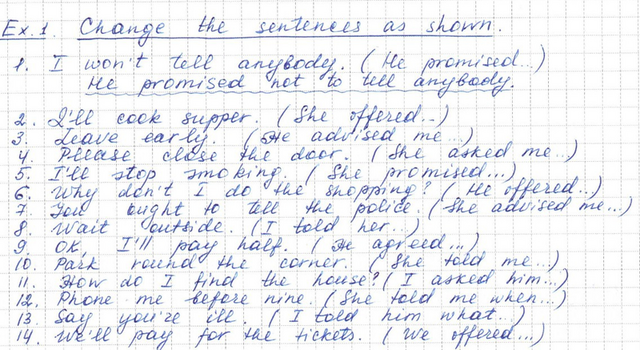 Ex. 1. Change the sentences as shown.
1. I won't tell anybody. (He promised...)
He promised not to tell anybody.
2. I'll cook supper. (She offered...)
3. Leave early. (He advised me...)
4. Please close the door. (She asked me...)
5. I'll stop smoking. (She promised...)
6. Why don't I do the shopping? (He offered...)
7. You ought to tell the police. (She advised me...)
8. Wait outside. (I told her...)
9. OK, I'll pay half. (He agreed...)
10. Park round the corner. (She told me...)
11. How do I find the house? (I asked him...)
12. Phone me before nine. (She told me when...)
13. Say you're ill. (I told him what...)
14. We'll pay for the tickets. (We offered...)